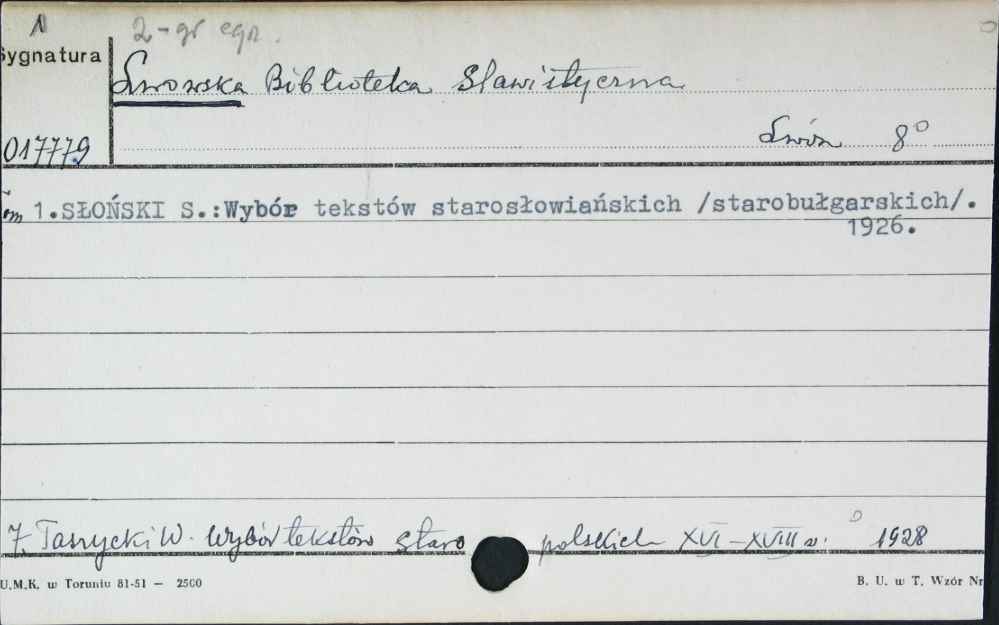 2-gi egz.
Sygnatura
Lwowska Biblioteka Slawistyczna
Lwów 8°
017779
1.SŁOŃSKI S.:Wybór tekstów starosłowiańskich /starobułgarskich/.
1926.
7. Taszycki W. Wybór tekstów staro polskich XVI-XVIII w. 1928
U.M.K. w Toruniu 81-51 — 2500
B. U. w T. Wzór Nr